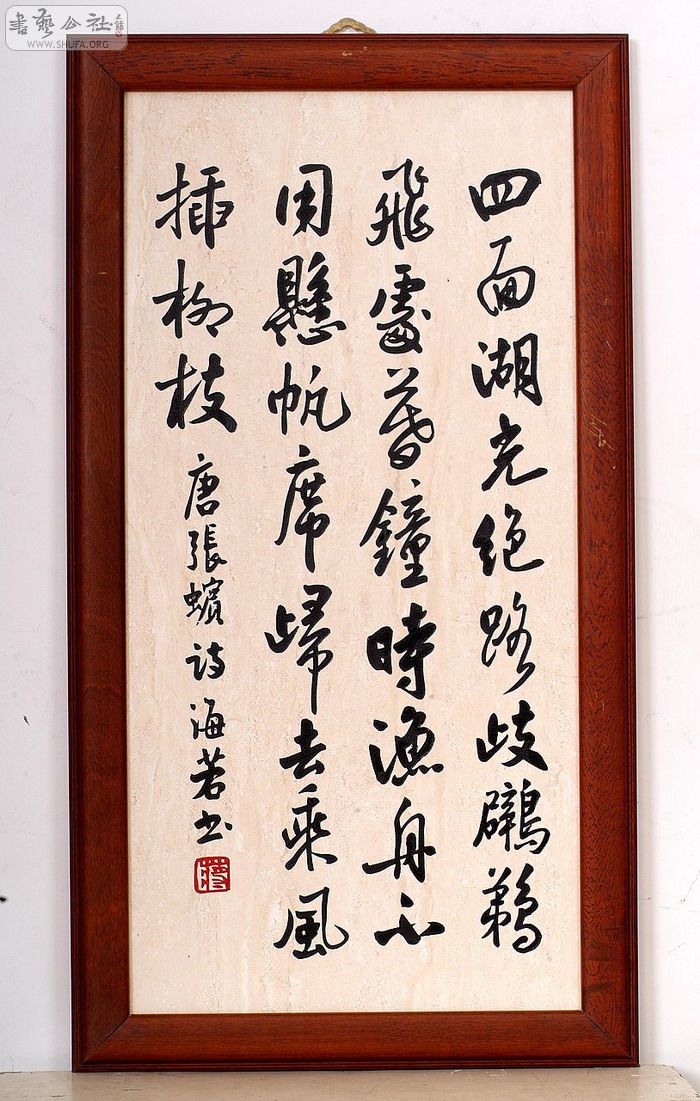 書藝公社
WWW.SHUFA.ORG
四面湖光絕路歧鷿鵜
飛處暮鐘時漁舟不
用懸帆席歸去乘風
插柳枝
唐張蠙詩海若書